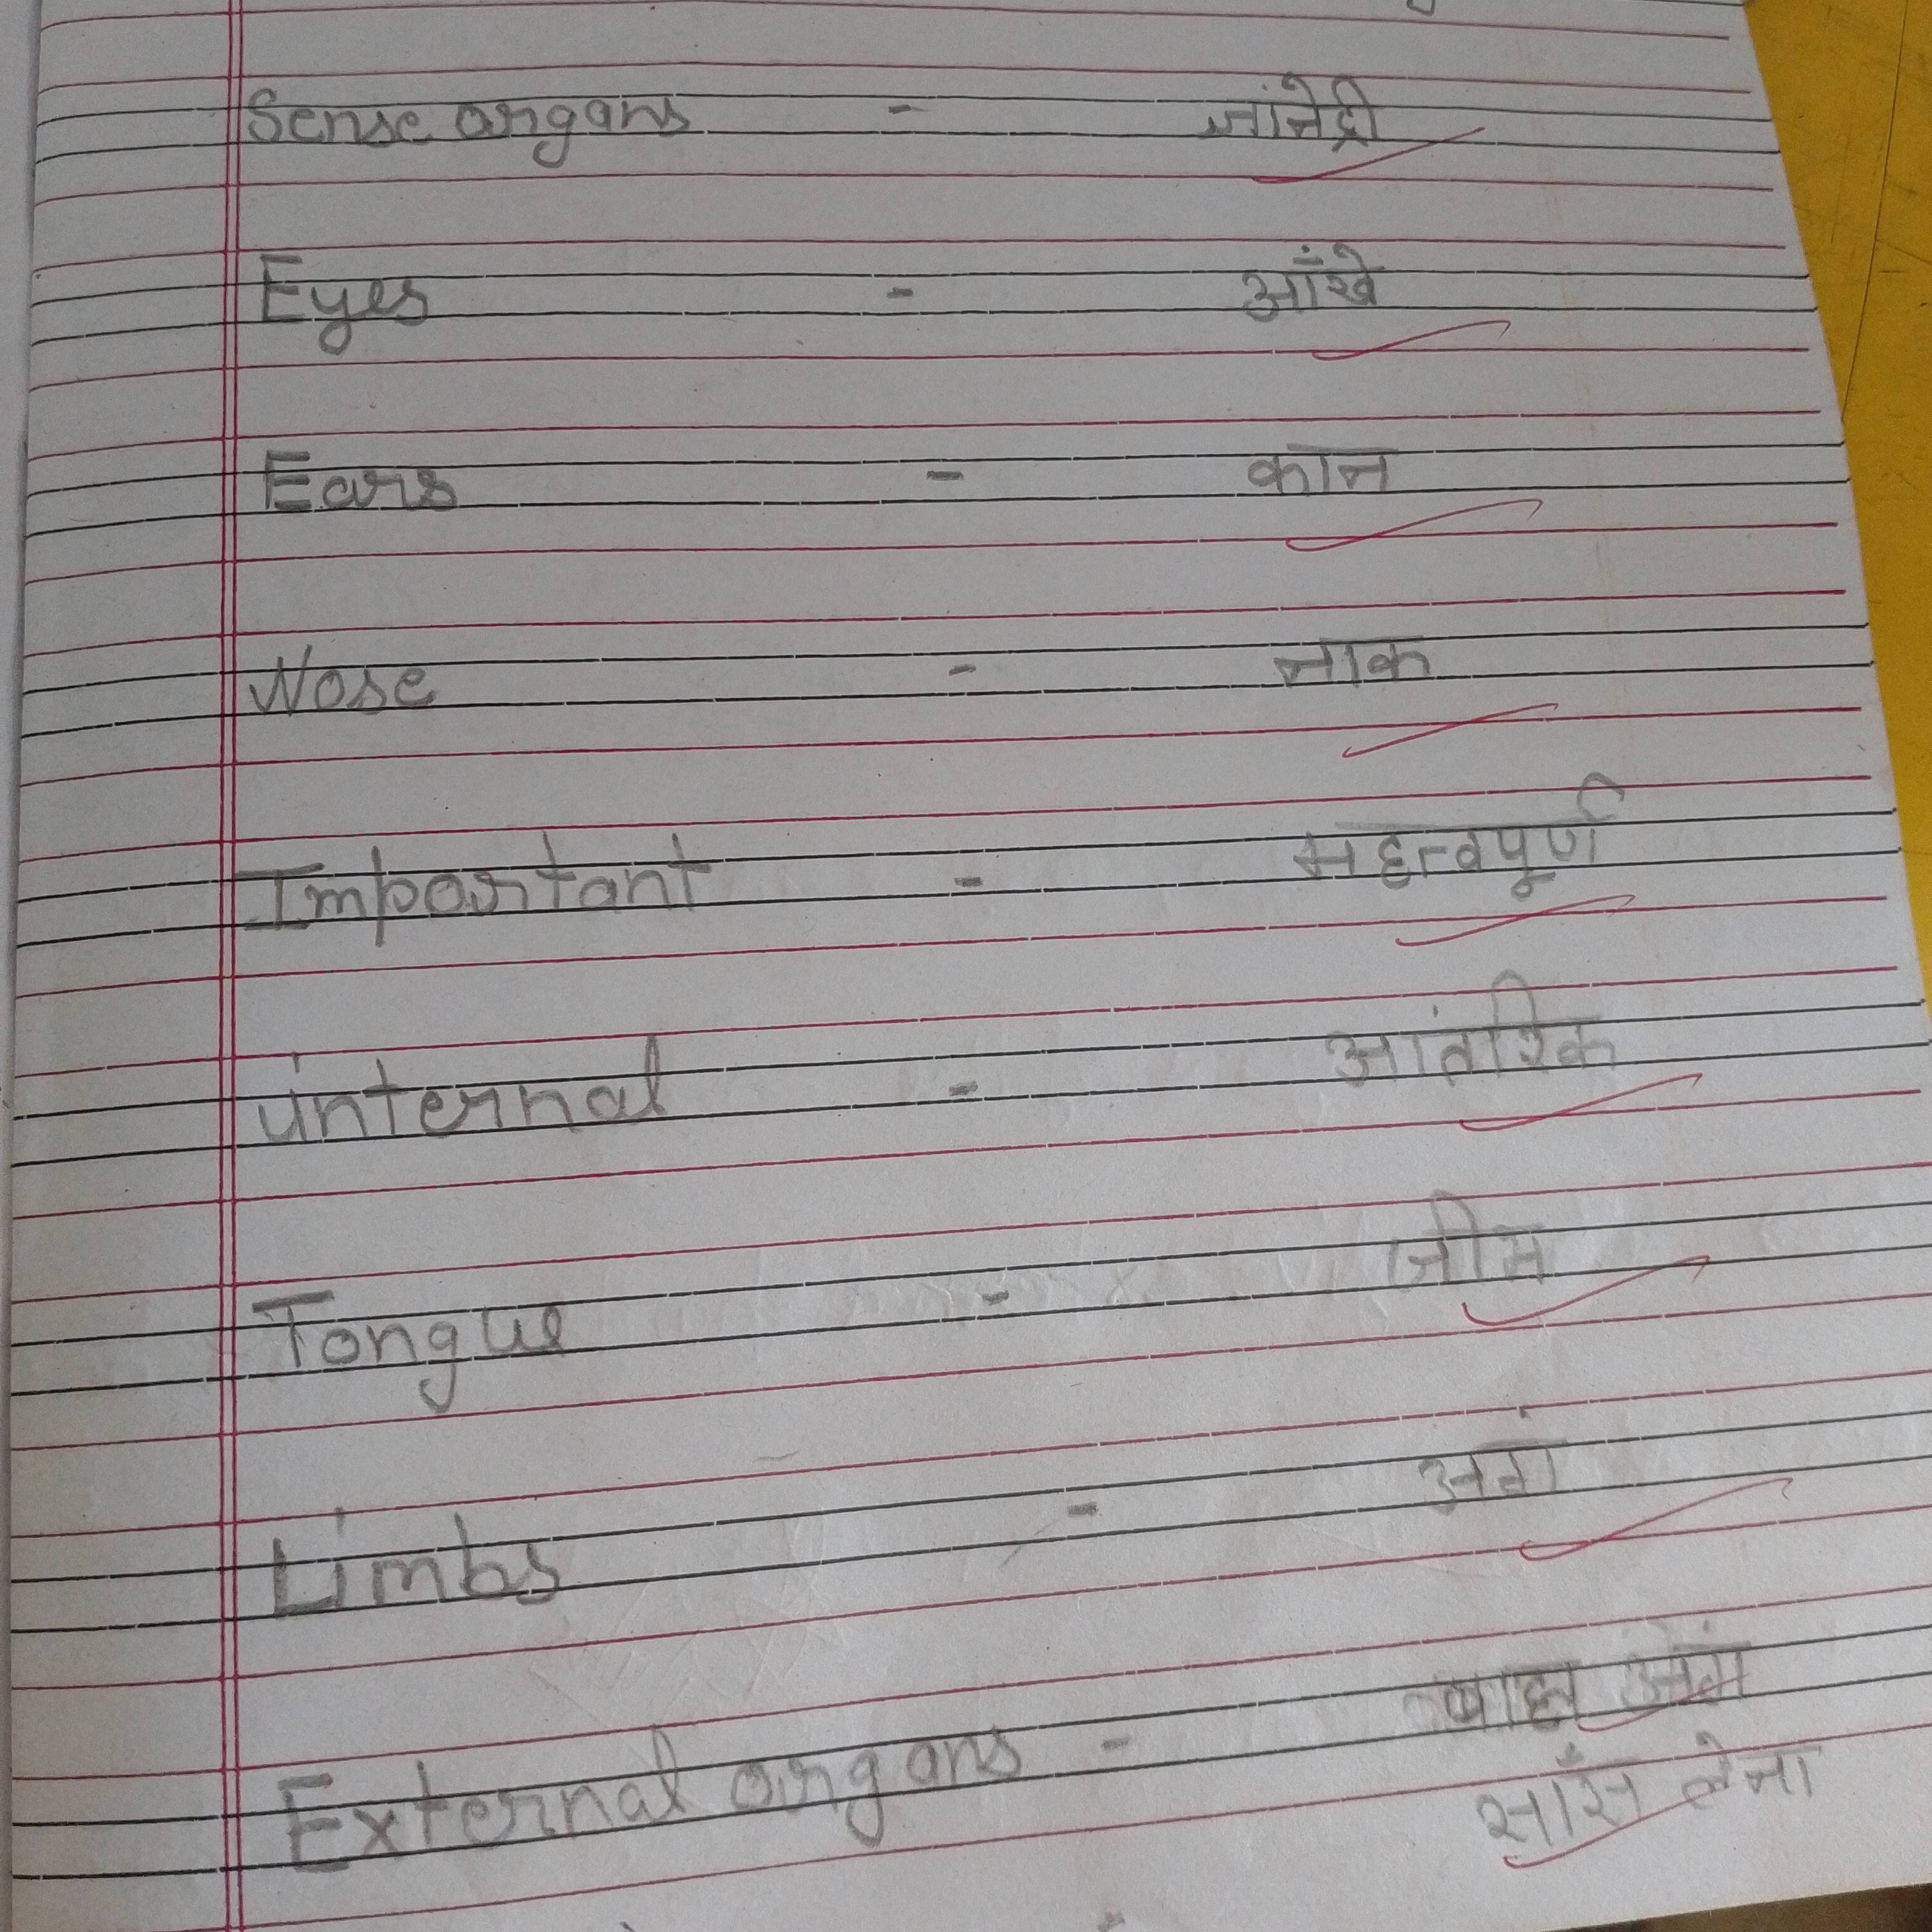 Sense organs - जांनेद्री
Eyes - आँखे
Ears - कान
Nose - नाक
Important - महत्वपूर्ण
internal - आंतरिक
Tongue - जीभ
Limbs - अंग
External organs - बाह्य अंग
साँस लेना